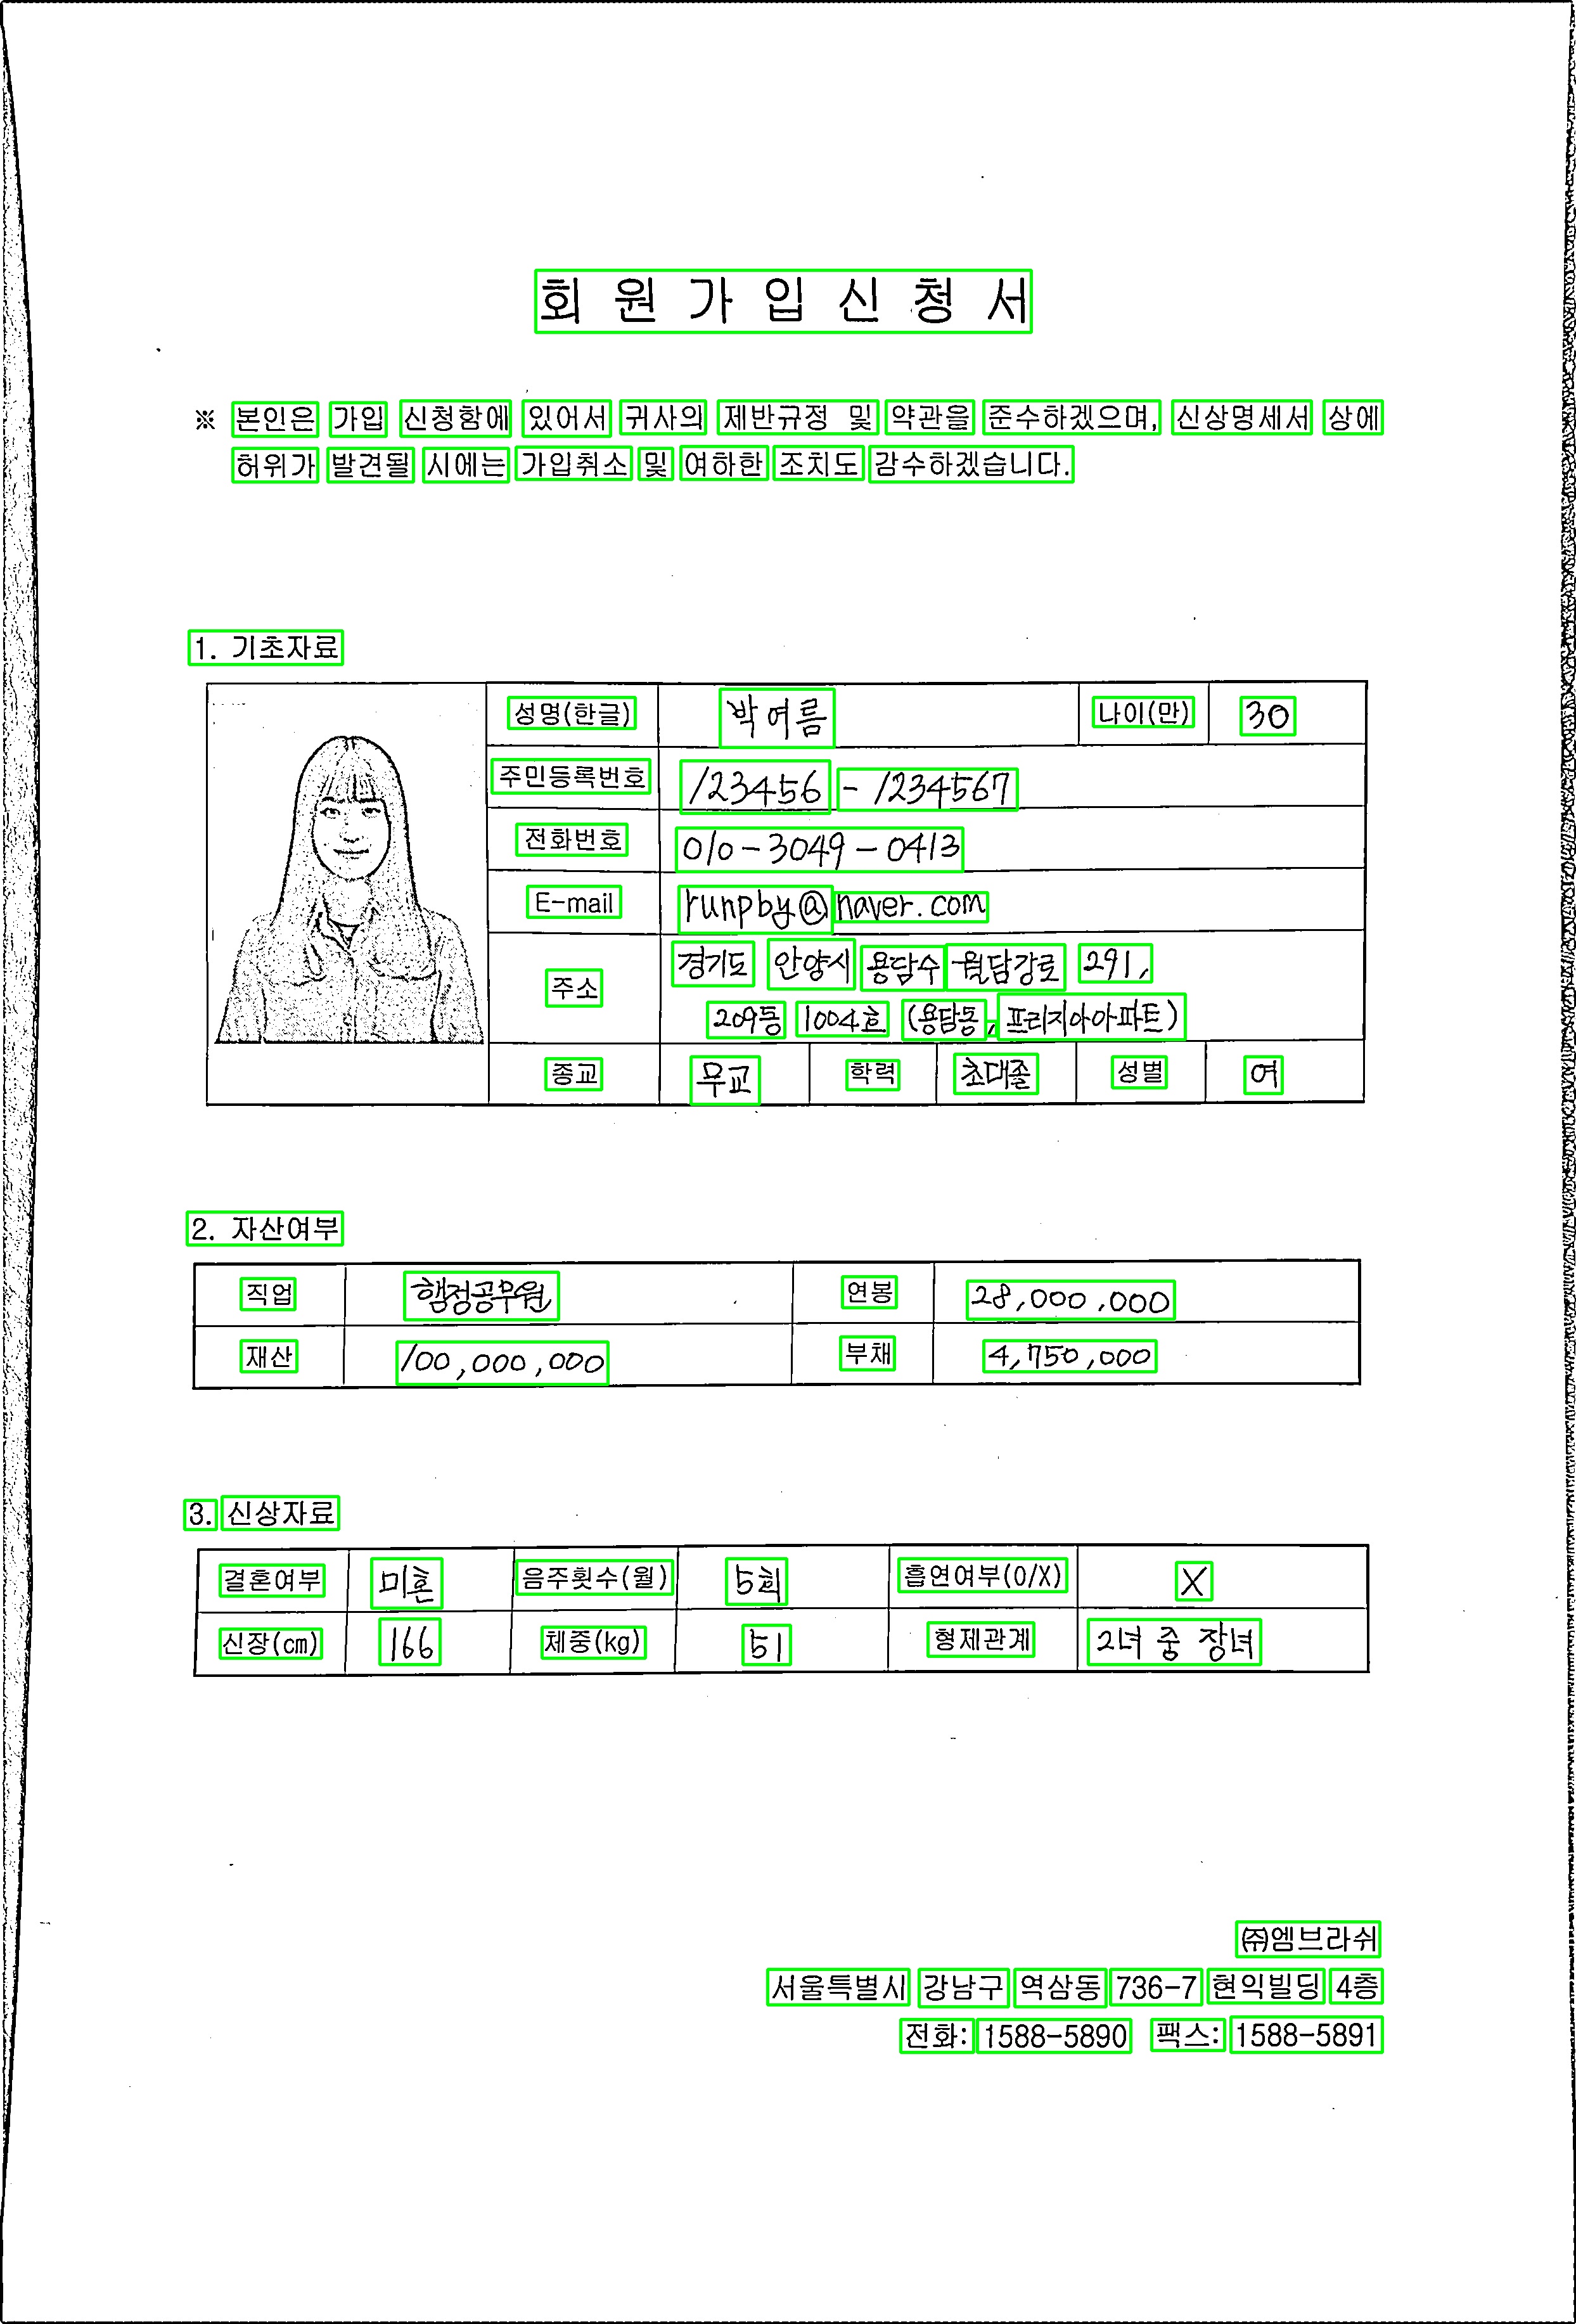 회 원 가 입 신 청 서
※ 본인은 가입 신청함에 있어서 귀사의 제반규정 및 약관을 준수하겠으며, 신상명세서 상에
허위가 발견될 시에는 가입취소 및 여하한 조치도 감수하겠습니다.
1. 기초자료
성명(한글) 박여름 나이(만) 30
주민등록번호 123456 - 1234567
전화번호 010-3049-0413
E-mail runpby@naver.com
주소 경기도 안양시 용담수 월담강로 291,
209동 1004호 (용담동, 프리지아아파트)
종교 무교 학력 초대졸 성별 여
2. 자산여부
직업 행정공무원 연봉 28,000,000
재산 100,000,000 부채 4,750,000
3. 신상자료
결혼여부 미혼 음주횟수(월) 5회 흡연여부(O/X) X
신장(cm) 166 체중(kg) 51 형제관계 2녀 중 장녀
㈜엠브라쉬
서울특별시 강남구 역삼동 736-7 현익빌딩 4층
전화: 1588-5890 팩스: 1588-5891